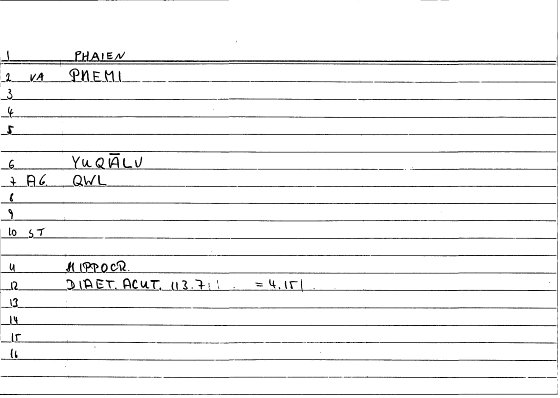 1 PHAIEN
2 VA PHEMI
3
4
5
6 YUQĀLU
7 AG. QWL
8
9
10 ST
11 HIPPOCR.
12 DIAET. ACUT. = 4.15
13
14
15
16